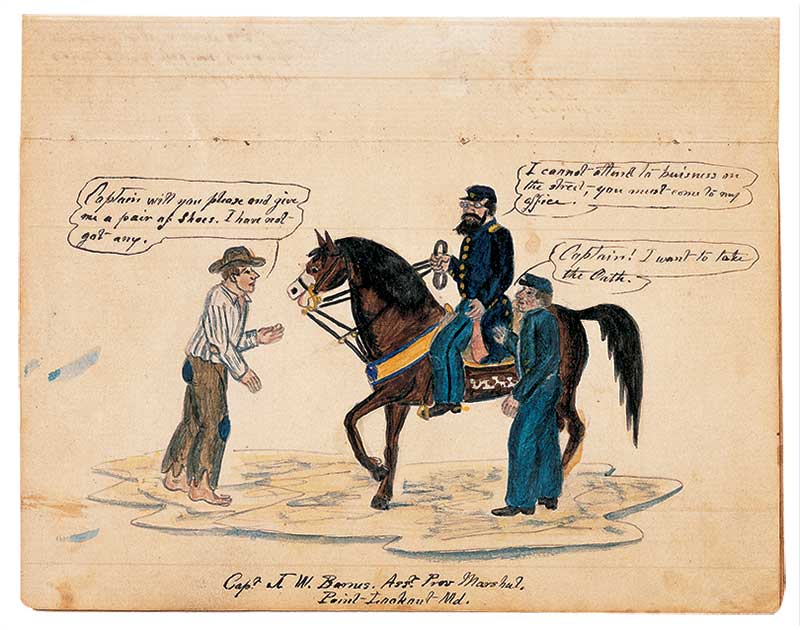 Captain will you please and give
me a pair of Shoes. I have not
got any.
I cannot attend to buisness on
the street, you must come to my
office.
Captain! I want to take
the Oath.
Capt J W. Barnes. Asst. Prov Marshal.
Point-Lookout-Md.